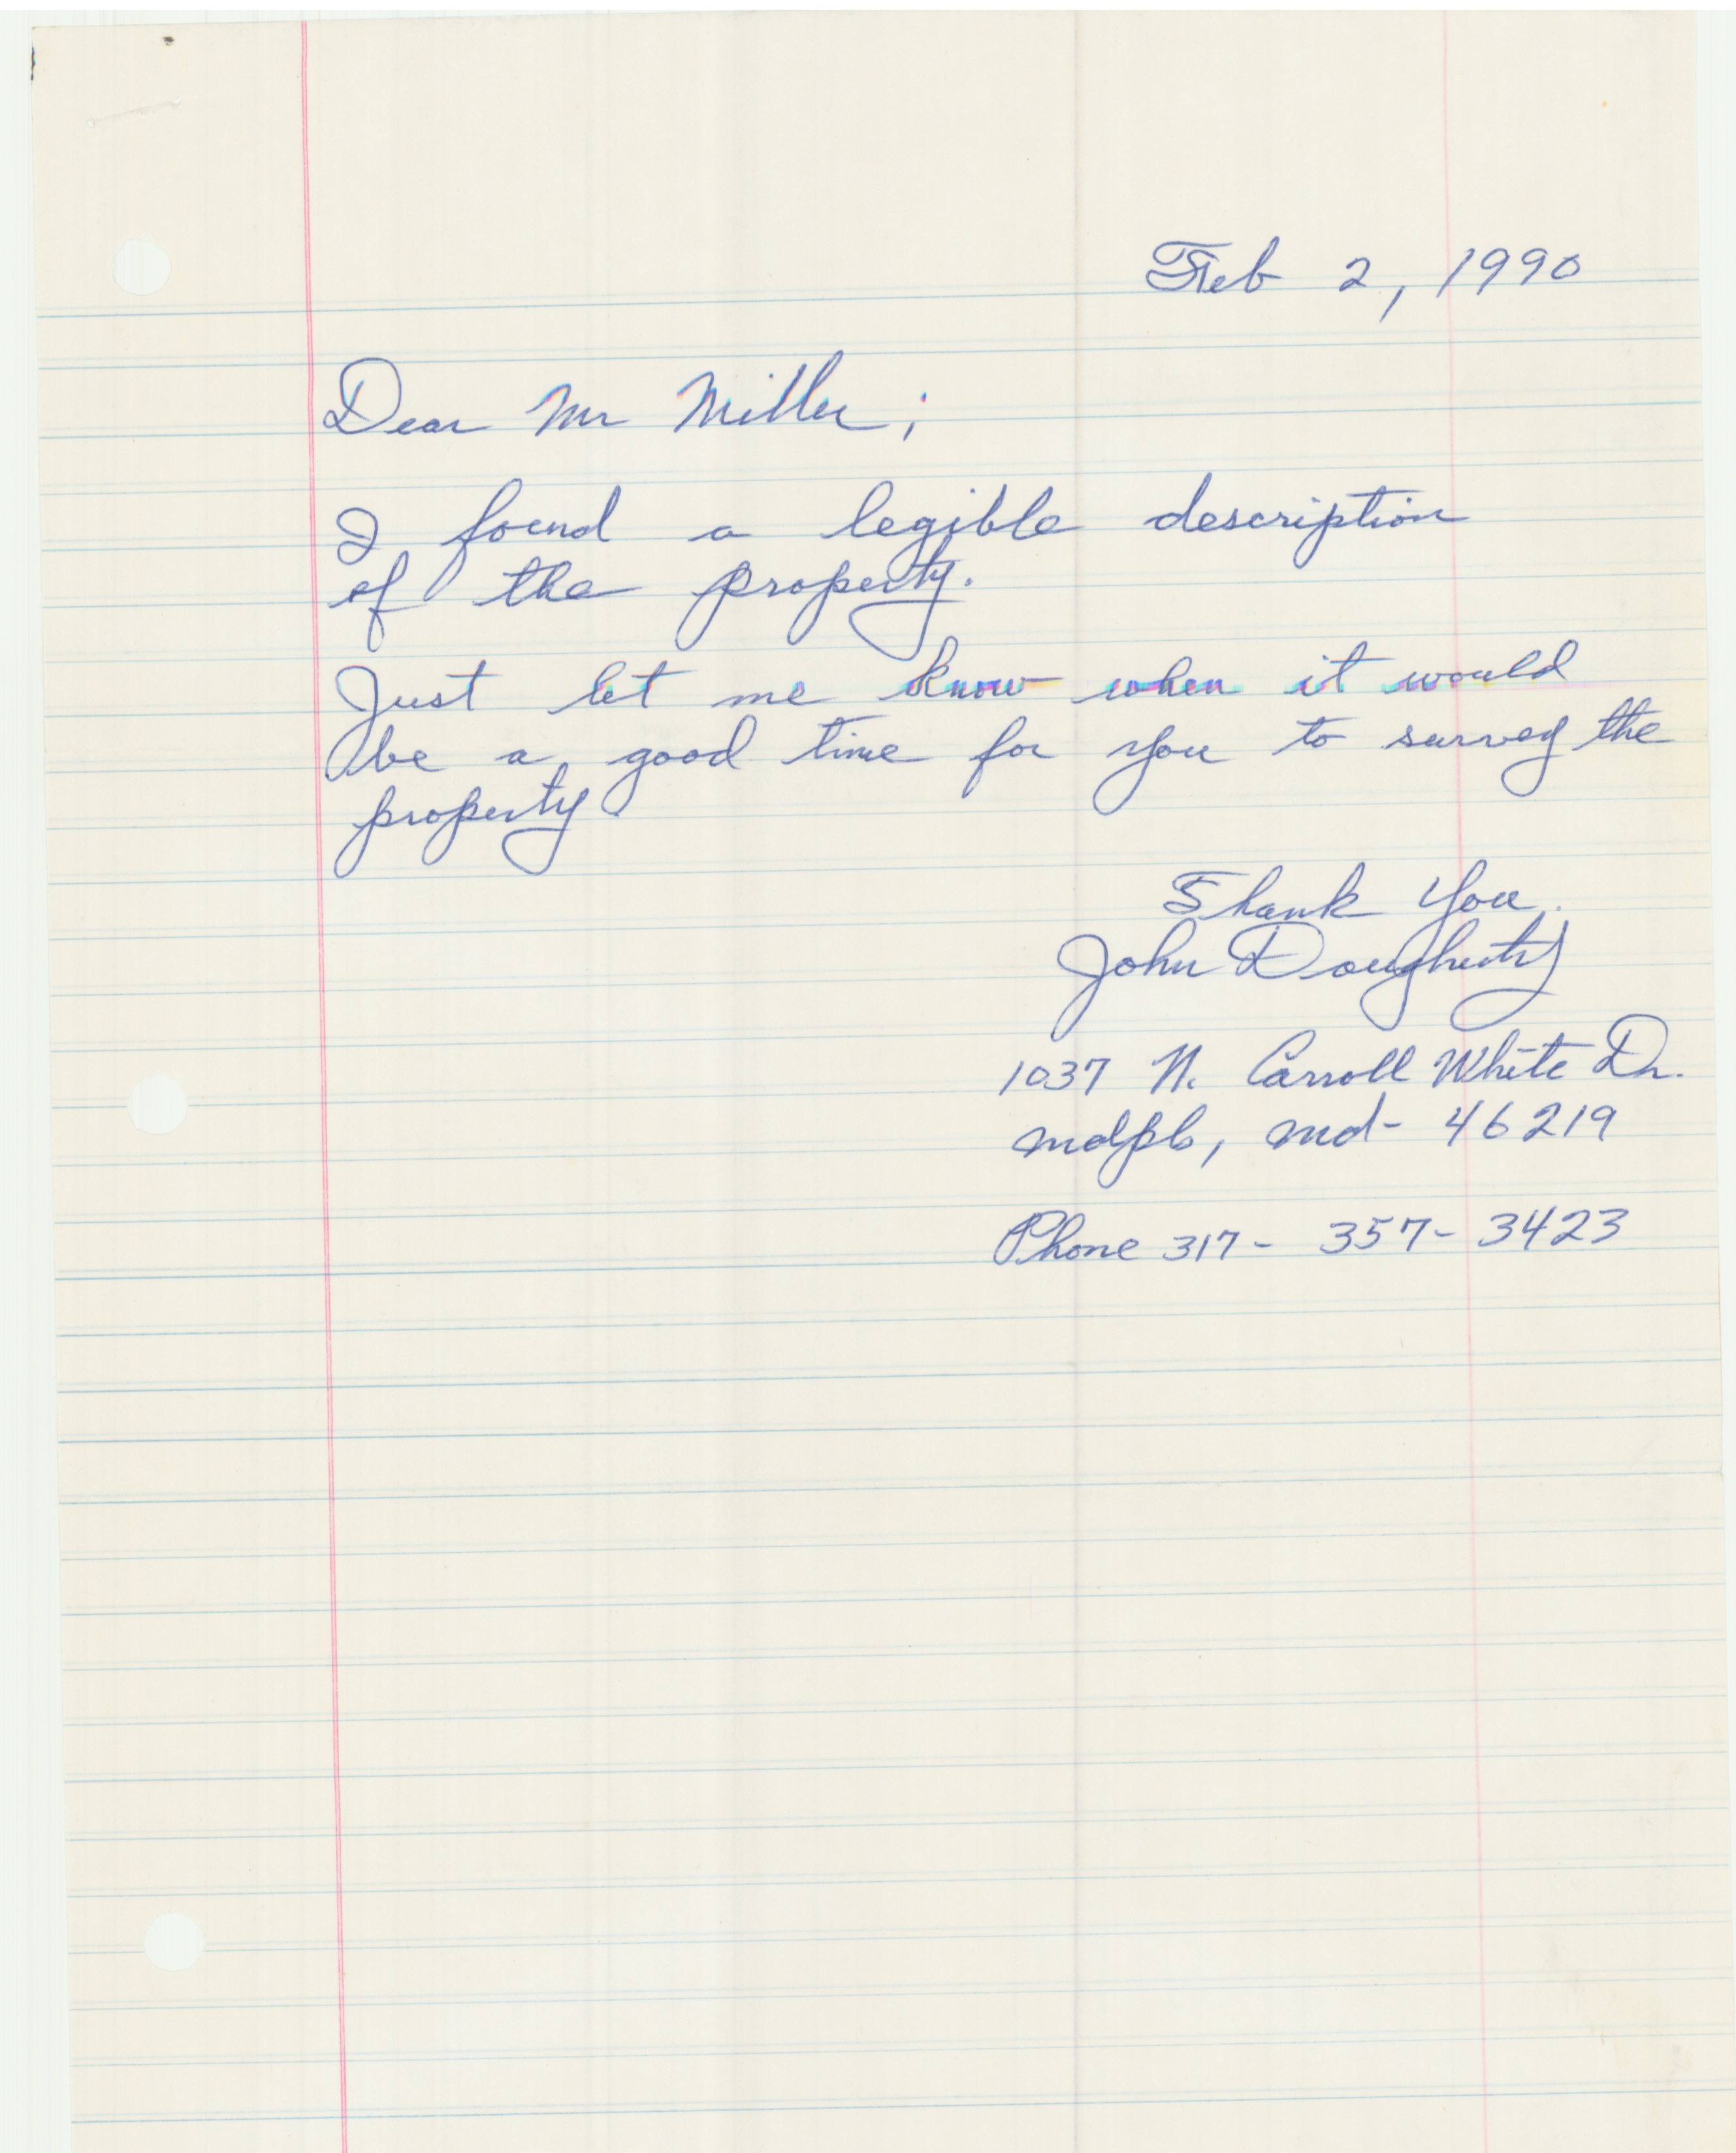 Feb 2, 1990
Dear Mr Miller;
I found a legible description
of the property.
Just let me know when it would
be a good time for you to survey the
property.
Thank You.
John Dougherty
1037 N. Carroll White Dr.
Indpls, Ind- 46219
Phone 317- 357- 3423